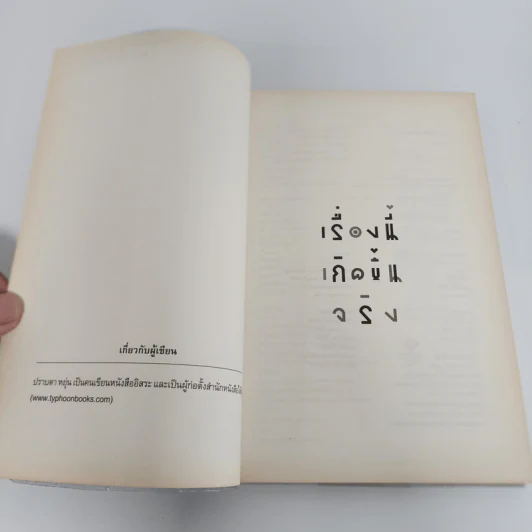 เกี่ยวกับผู้เขียน
ปราบดา หยุ่น เป็นคนเขียนหนังสืออิสระ และเป็นผู้ก่อตั้งสำนักหนังสือ
(www.typhoonbooks.com)
เรื่องนี้
เกิดขึ้น
จริง